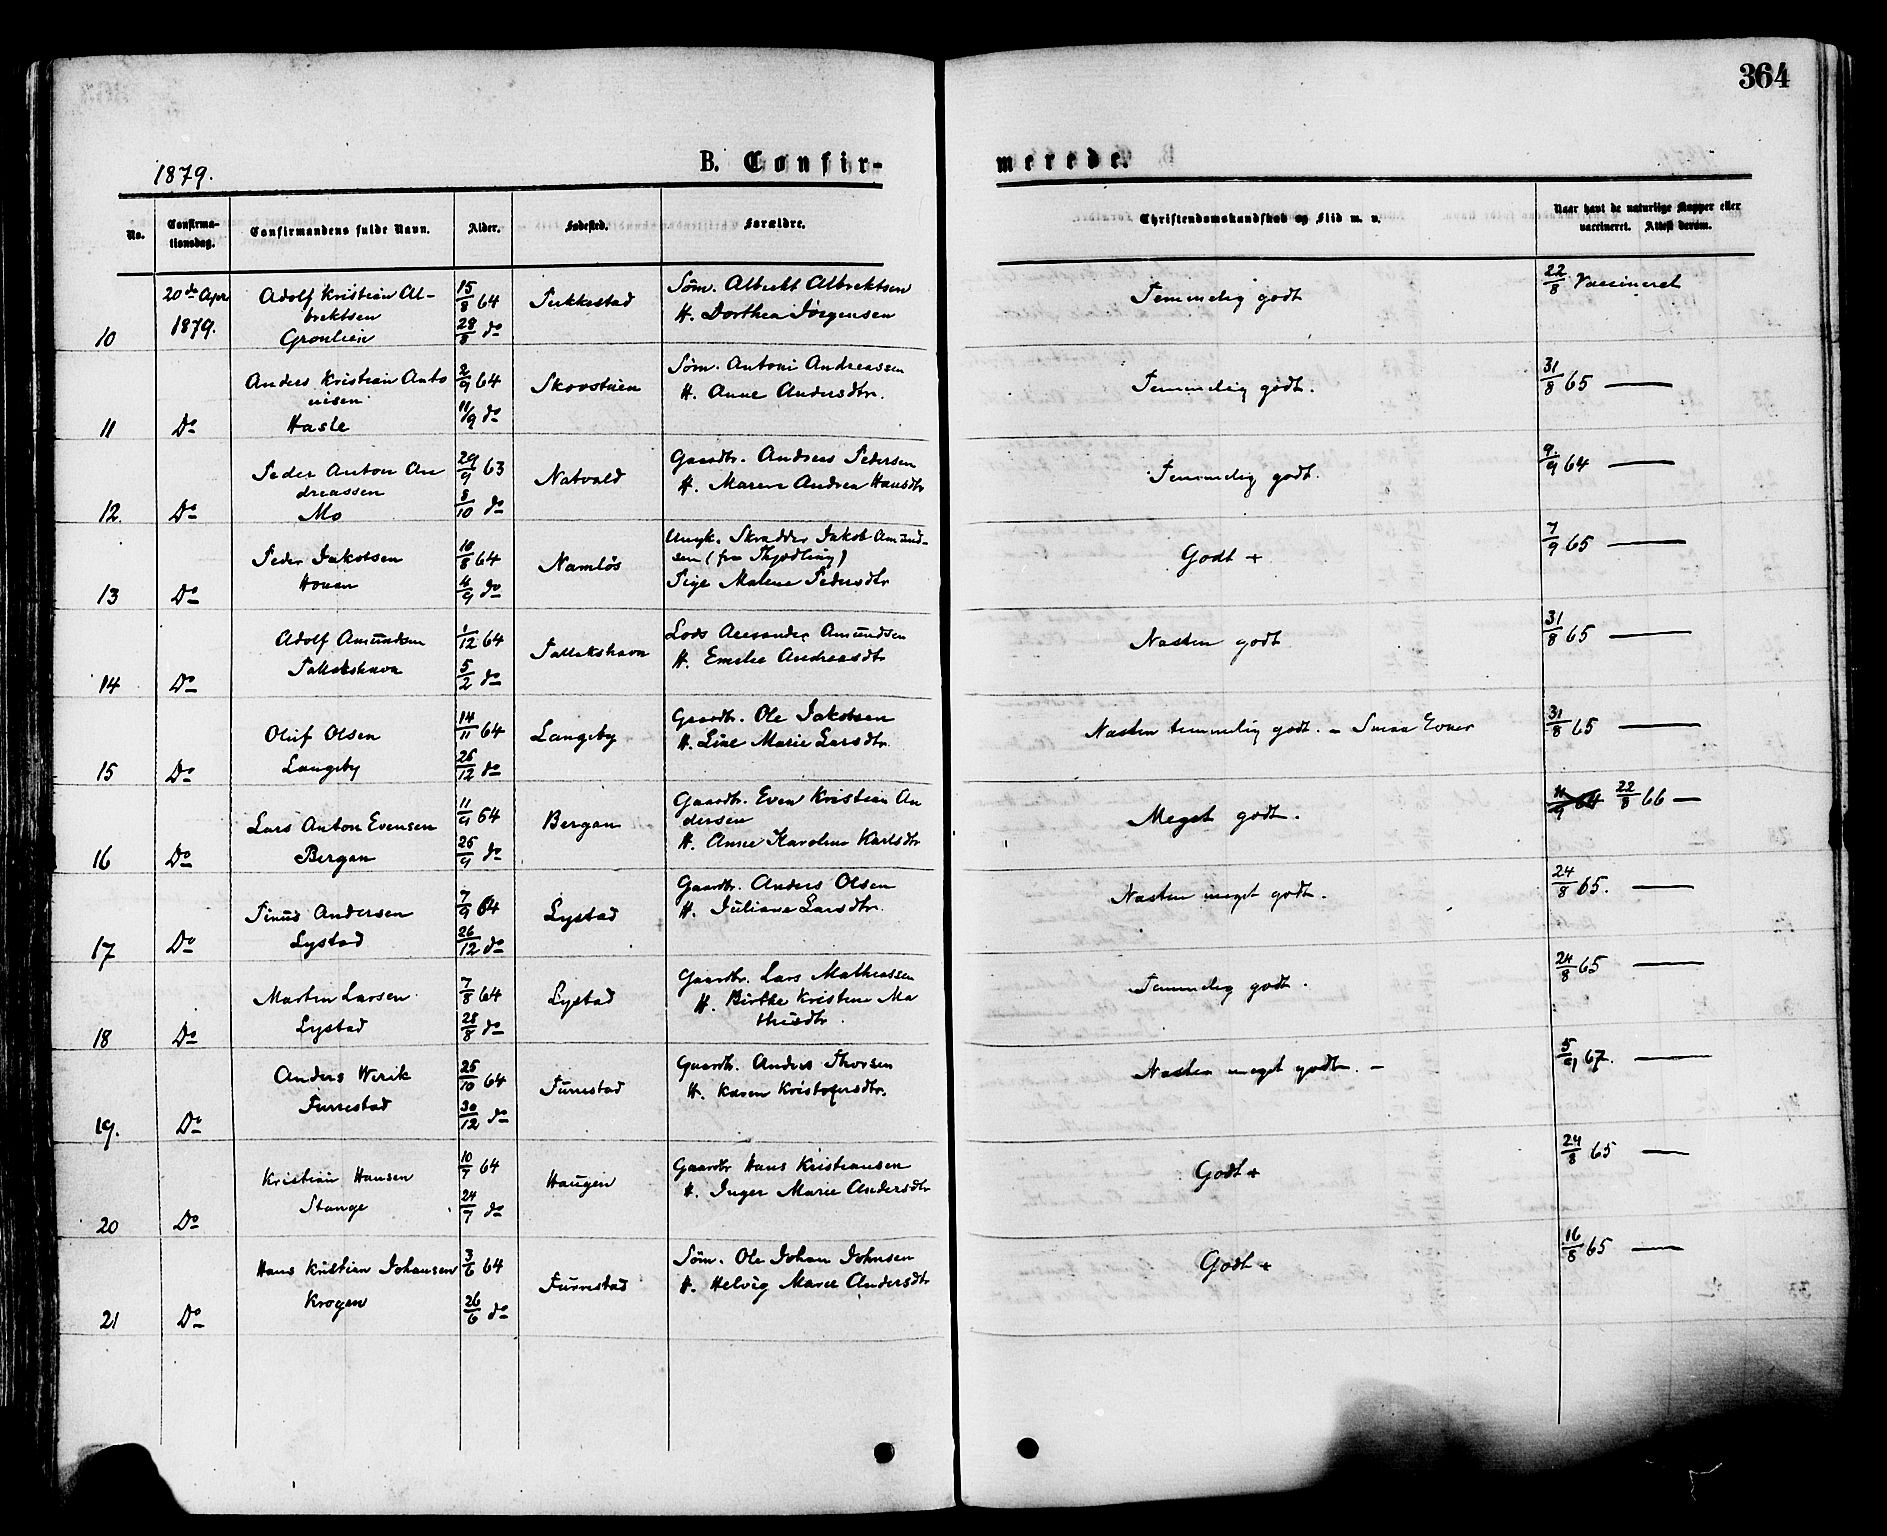 364
1879.
B. Confir-
merede.
No.
Confirma-
tionsdag.
Confirmandens fulde Navn.
Alder.
Fødested.
Forældre.
Christendomskundskab og Flid m. v.
Naar havt de naturlige Kopper eller
vaccineret. Attest derom.
10
20de Apr
1879.
Adolf Kristian Al-
brektsen
Gronlien
15/8 64
28/8 do
Søm. Albrekt Albrektsen
H. Dorthea Jørgensen
Temmelig godt
22/8 Vaccineret
11
Do
Anders Kristian Anto
nisen
Hasle
2/9 64
11/9 do
Skovstuen
Søm. Antoni Andreassen
H. Anne Andersdtr.
Temmelig godt.
31/8 65 —
12.
Do
Peder Anton An
dreassen
Mo
29/9 63
8/10 do
Natvald
Gaardbr. Andreas Pedersen
H. Maren Andrea Hansdtr
Temmelig godt.
9/9 64 —
13
Do
Peder Jakobsen
Houen
10/8 64
4/9 do
Namløs
Ungk. Skrædder Jakob Amund-
sen (fra Thjødling)
Pige Malene Pedersdtr
Godt +
7/9 65 —
14
Do
Adolf Amundsen
Tallakshavn
1/12 64
5/2 do
Tallakshavn
Lods Alexander Amundsen
H. Emilie Andreasdtr
Næsten godt
31/8 65 —
15
Do
Oluf Olsen
Langeby
14/11 64
26/12 do
Langeby
Gaardbr. Ole Jakobsen
H. Line Marie Larsdtr.
Næsten temmelig godt. – Smaa Evner
31/8 65 —
16
Do
Lars Anton Evensen
Bergan
11/9 64
25/9 do
Bergan
Gaardbr. Even Kristian An
dersen
H. Anne Karoline Karlsdtr
Meget godt.
11/9 64 22/8 66 —
17
Do
Tinus Andersen
Lystad
7/9 64
26/12 do
Lystad
Gaardbr. Anders Olsen
H. Juliane Larsdtr.
Næsten meget godt.
24/8 65. —
18
Do
Martin Larsen
Lystad
7/8 64
28/8 do
Lystad
Gaardbr. Lars Mathiassen
H. Birthe Kristine Ma
thisdtr.
Temmelig godt.
24/8 65 —
19.
Do
Anders Werik
Furrestad
25/10 64
30/12 do
Furrestad
Gaardbr. Anders Thorsen
H. Karen Kristofersdtr.
Næsten meget godt. –
5/9 67. —
20
Do
Kristian Hansen
Stange
10/7 64
24/7 do
Haugen
Gaardbr Hans Kristiansen
H. Inger Marie Andersdtr
Godt +
24/8 65 —
21
Do
Hans Kristian Johansen
Krogen
3/6 64
26/6 do
Furrestad
Søm. Ole Johan Johnsen
H. Helvig Marie Andersdtr
Godt +
16/8 65 —